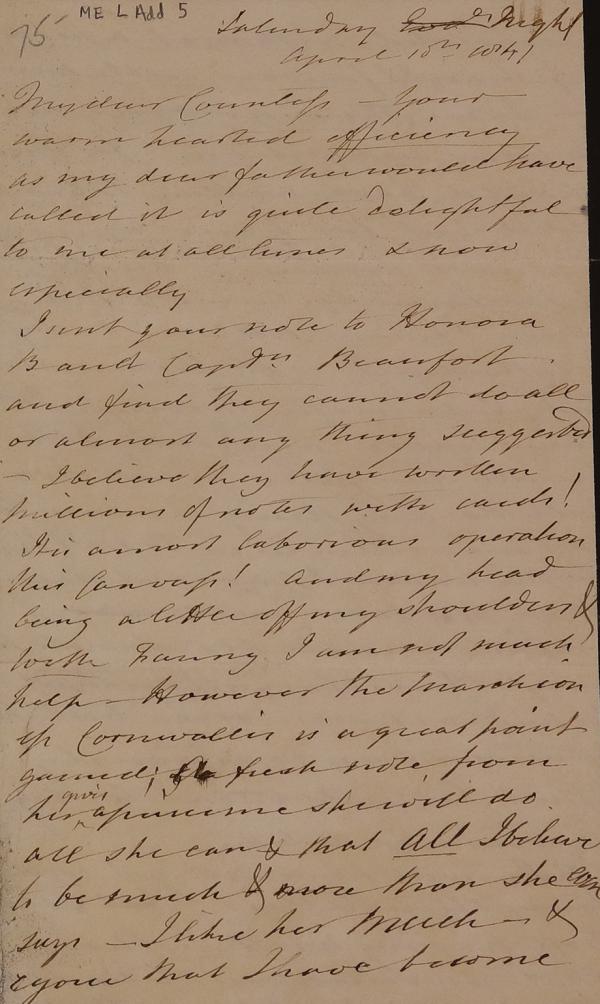 75
ME L Add 5
Saturday Night
April 10th 1841
My dear Countess – Your
warm hearted efficiency
as my dear father would have
called it is quite delightful
to me at all times & now
especially
I sent your note to Honora
B and Captn Beaufort.
and find they cannot do all
or almost any thing suggested
– I believe they have written
millions of notes with cards!
It is a most laborious operation
this Canvass! And my head
being a little off my shoulders &
with Fanny I am not much
help – However the Marchion
ess Cornwallis is a great point
gained; A fresh note from
her assures me she will do
all she can & that All I believe
to be much & more than she ever
says – I like her much – &
rejoice that I have become